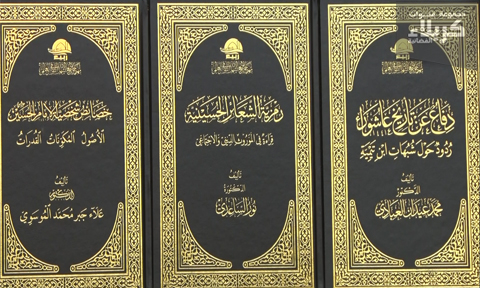 مجموعة قنوات
كربلاء
الفضائية
دفاع عن تاريخ عاشوراء
ردود حول شبهات ابن تيمية
تأليف
الدكتور
محمد عبدان العبادي
رمزية الشعائر الحسينية
قراءة في الموروث الديني والاجتماعي
تأليف
الدكتورة
نور الساعدي
خصائص شخصية الإمام الحسين
الأصول المكونات القدرات
تأليف
الدكتور
علاء جبر محمد الموسوي